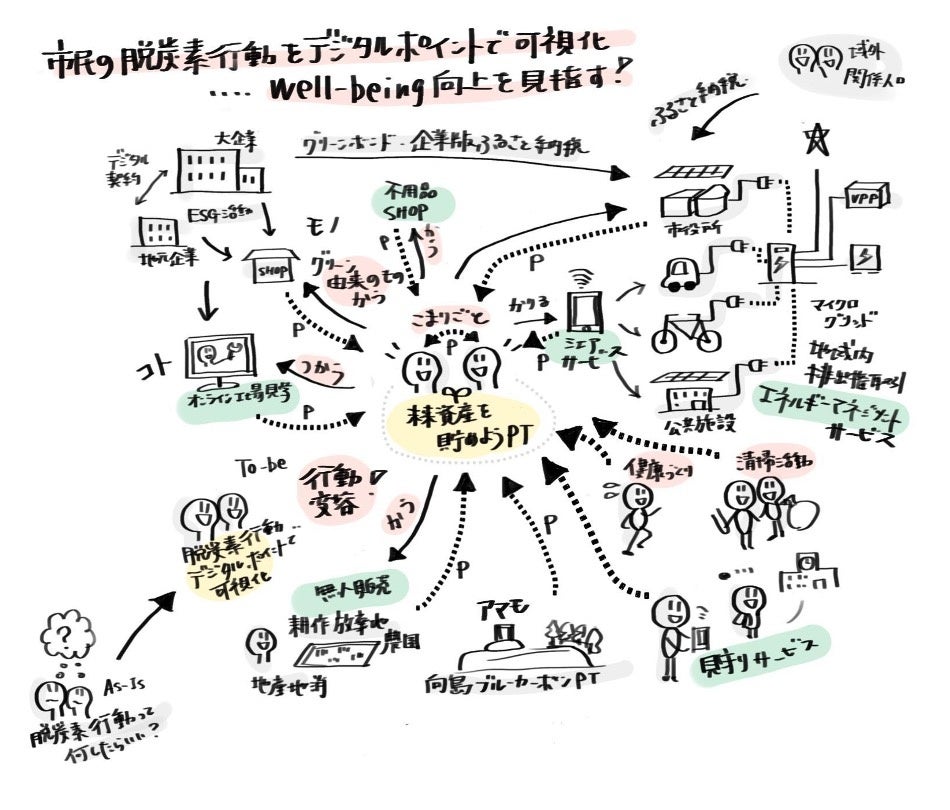 市民の脱炭素行動をデジタルポイントで可視化
‥‥ well-being 向上を見指す!
域外
関係人口
ふるさと納税
大企業
グリーンボンド・企業版ふるさと納税
デジタル
契約
ESG活動
地元企業
SHOP
モノ
グリーン
由来のもの
かう
P
不用品
SHOP
P
かう
市役所
P
VPP
こまりごと
P
かりる
シェア
サービス
P
マイクロ
グリッド
地域内
エネルギーマネジメント
サービス
公共施設
コト
つかう
オンライン工場見学
P
貯めようPT
健康づくり
清掃活動
To-be
行動
変容!
脱炭素行動
デジタルポイントで
可視化
かう
無人販売
耕作放棄地
農園
地産地消
P
アマモ
向島ブルーカーボンPT
P
P
見守りサービス
?
As-Is
脱炭素行動って
何したらいい?